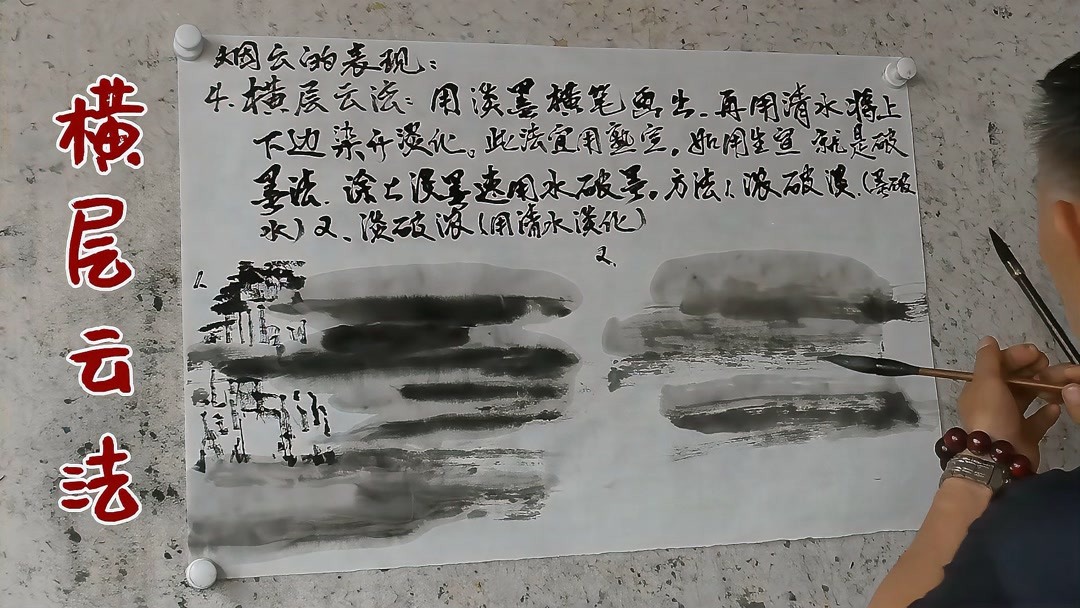 横层云法
烟云的表现：
4.横层云法：用淡墨横笔画出、再用清水将上
下边染开淡化。此法宜用熟宣，如用生宣就是破
墨法、涂上浓墨速用水破墨。方法1、浓破淡、（墨破
水）2、淡破浓（用清水淡化）
1.
2.